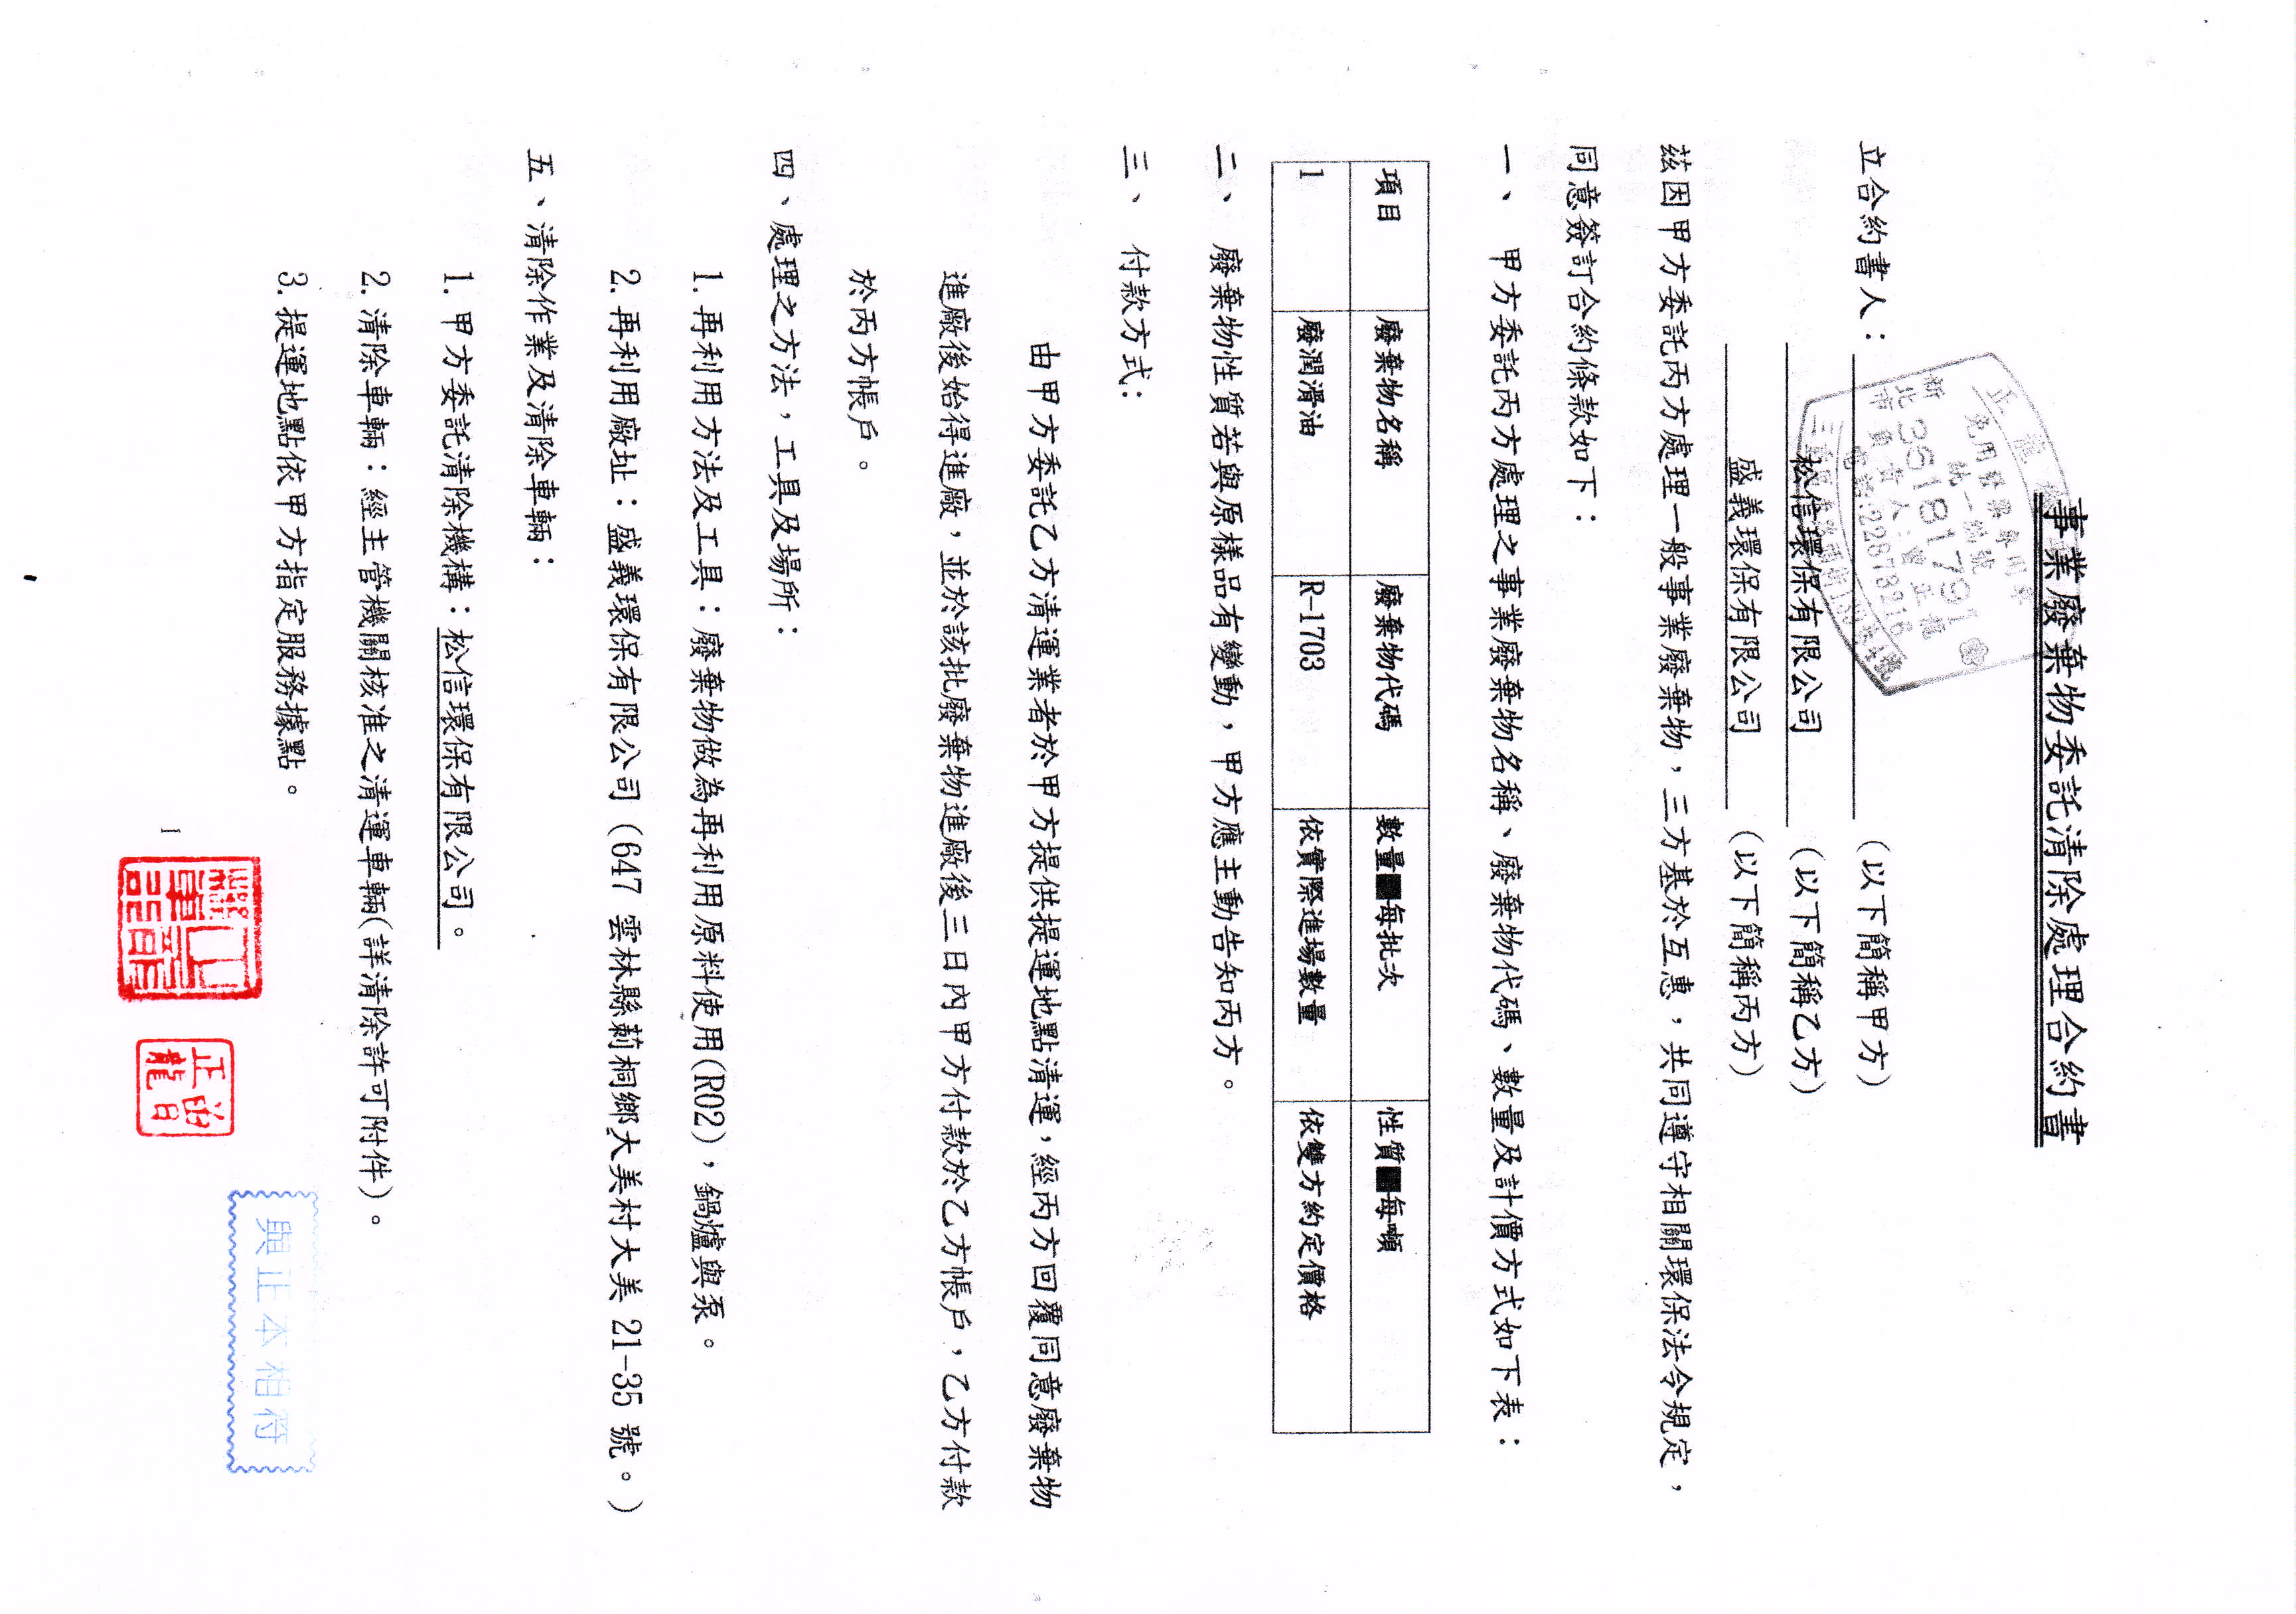 事業廢棄物委託清除處理合約書
立合約書人：　　　　　　　　(以下簡稱甲方)
松信環保有限公司　(以下簡稱乙方)
盛義環保有限公司　(以下簡稱丙方)
免用統一發票專用章
統一編號
36181791
電話:22873216
茲因甲方委託丙方處理一般事業廢棄物，三方基於互惠，共同遵守相關環保法令規定，
同意簽訂合約條款如下：
一、 甲方委託丙方處理之事業廢棄物名稱、廢棄物代碼、數量及計價方式如下表：
項目 廢棄物名稱 廢棄物代碼 數量■每批次 性質■每噸
1 廢潤滑油 R-1703 依實際進場數量 依雙方約定價格
二、 廢棄物性質若與原樣品有變動，甲方應主動告知丙方。
三、 付款方式:
由甲方委託乙方清運業者於甲方提供提運地點清運，經丙方回覆同意廢棄物
進廠後始得進廠，並於該批廢棄物進廠後三日內甲方付款於乙方帳戶，乙方付款
於丙方帳戶。
四、處理之方法，工具及場所：
1.再利用方法及工具：廢棄物做為再利用原料使用(R02)，鍋爐與泵。
2.再利用廠址：盛義環保有限公司（647 雲林縣莿桐鄉大美村大美 21-35 號。）
五、清除作業及清除車輛：
1.甲方委託清除機構：松信環保有限公司。
2.清除車輛：經主管機關核准之清運車輛(詳清除許可附件)。
3.提運地點依甲方指定服務據點。
1
與正本相符